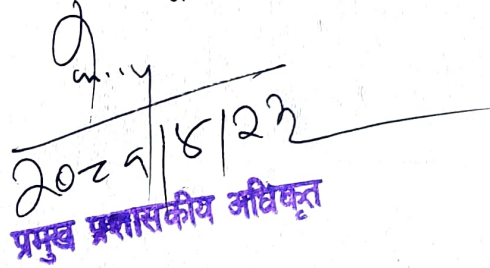 २०८१/४/२३
प्रमुख प्रशासकीय अधिकृत